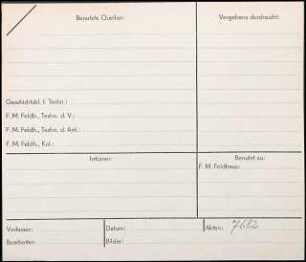 Benutzte Quellen:
Vergebens durchsucht:
Geschichtsbl. f. Techn.:
F. M. Feldh., Techn. d. V.:
F. M. Feldh., Techn. d. Ant.:
F. M. Feldh., Kal.:
Irrtümer:
Benutzt zu:
F. M. Feldhaus:
Verfasser:
Datum:
Akten: 7682
Bearbeiter:
Bilder: